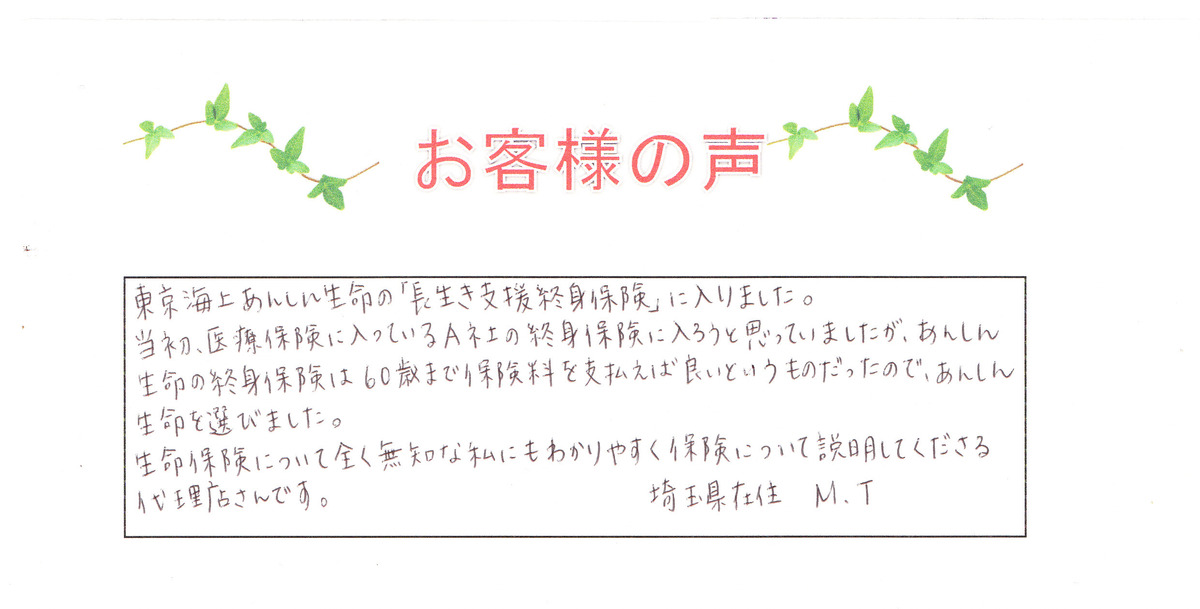 お客様の声
東京海上あんしん生命の「長生き支援終身保険」に入りました。
当初、医療保険に入っているA社の終身保険に入ろうと思っていましたが、あんしん
生命の終身保険は60歳まで保険料を支払えば良いというものだったので、あんしん
生命を選びました。
生命保険について全く無知な私にもわかりやすく保険について説明してくださる
代理店さんです。 埼玉県在住 M.T